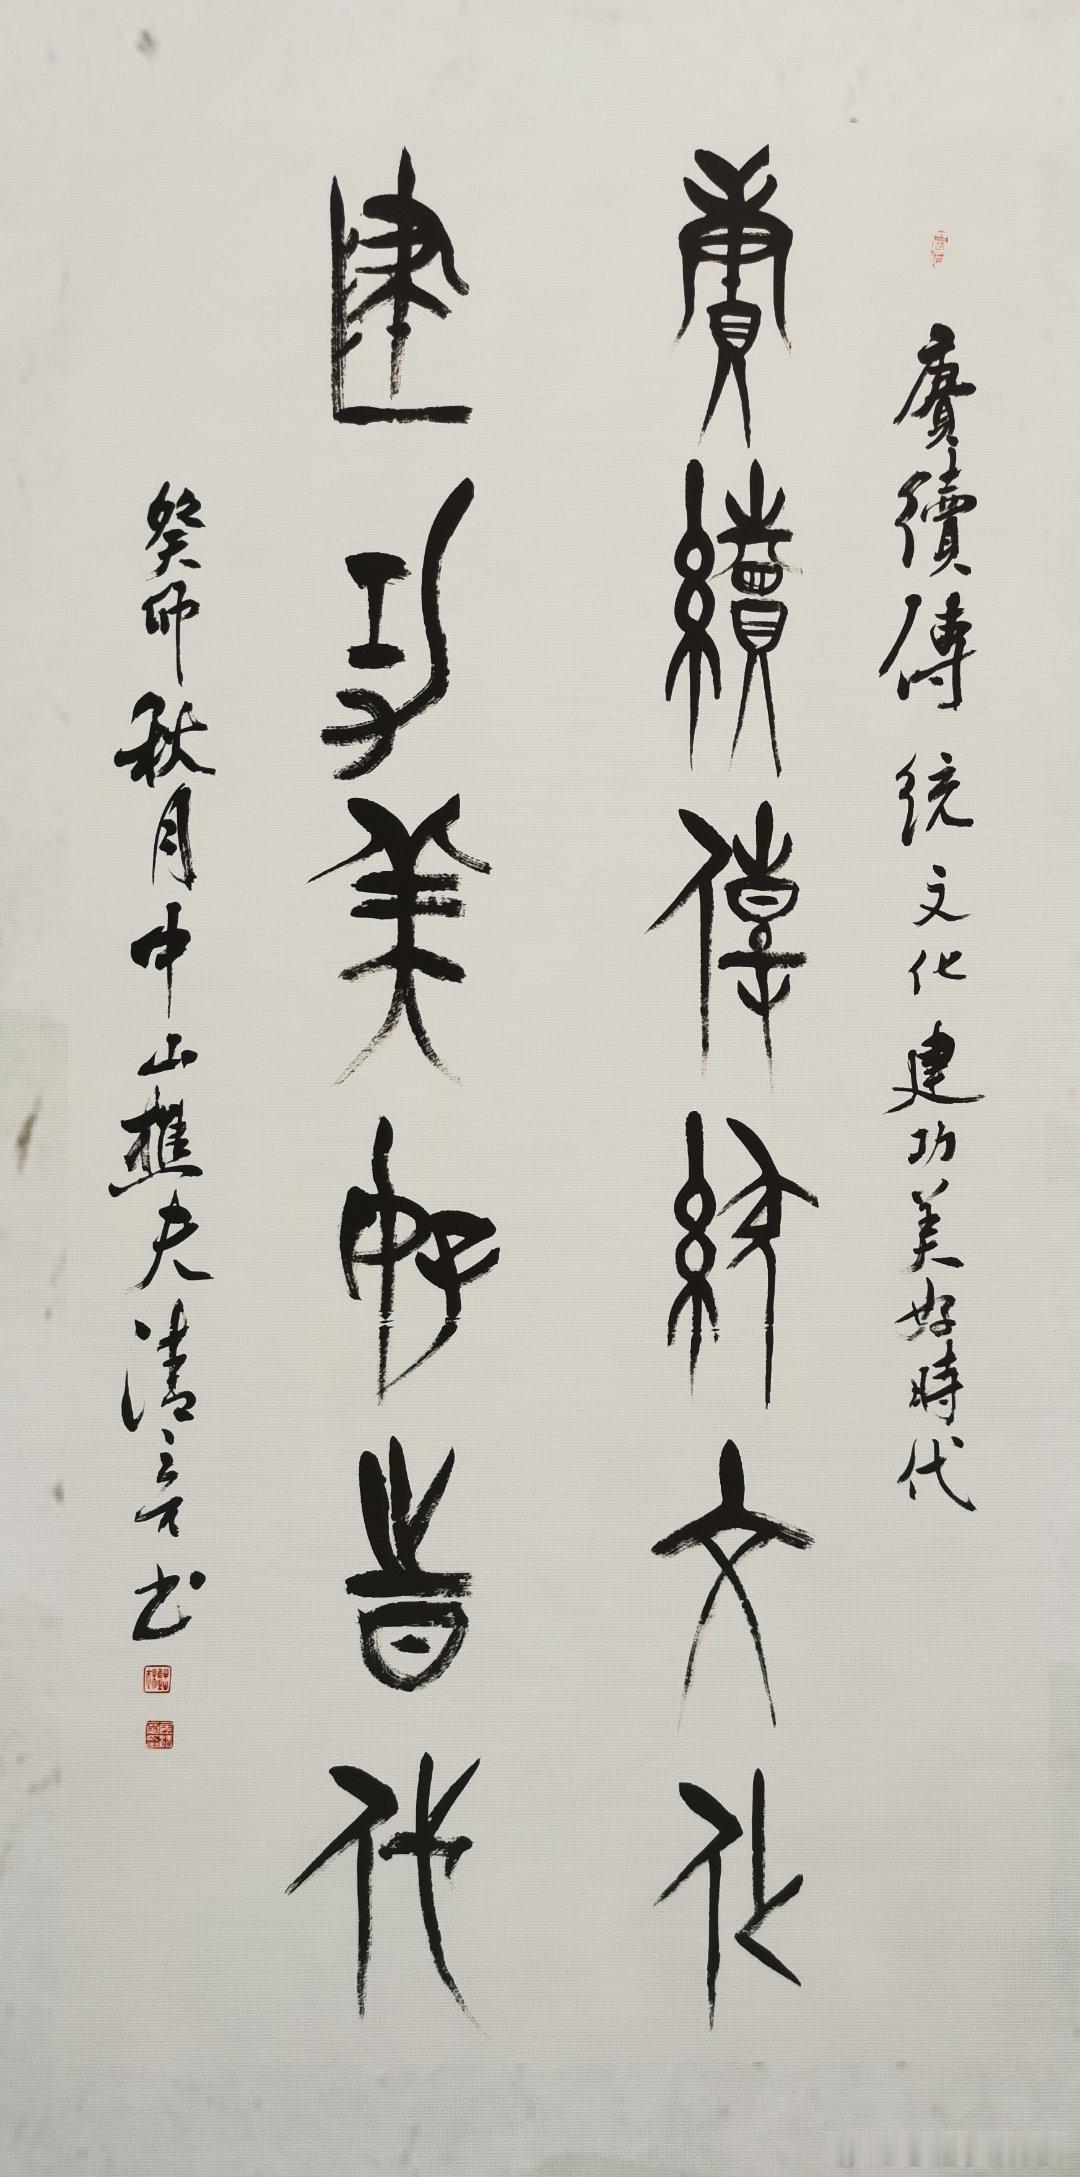 賡續傳統文化建功美好時代
賡續傳統文化
建功美好時代
癸卯秋月中山樵夫清言书